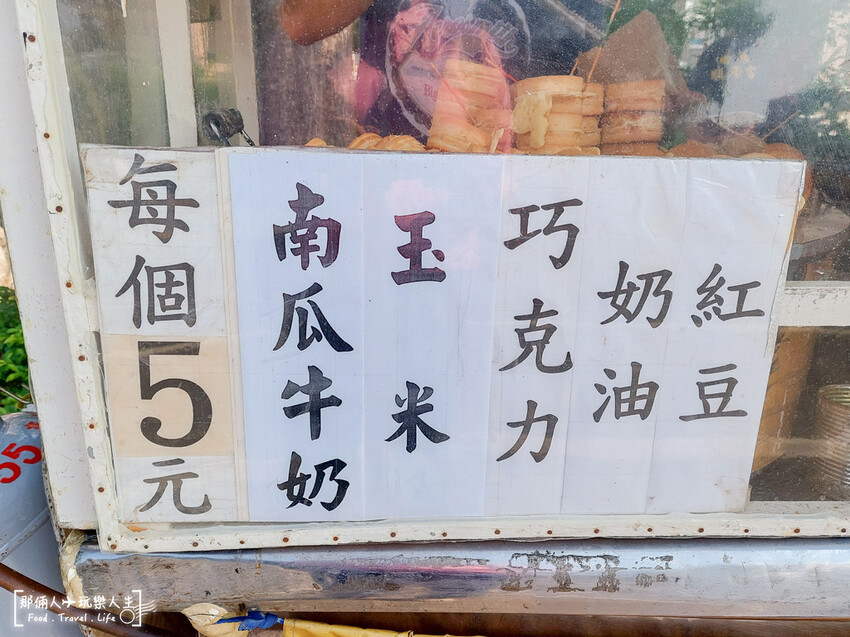 紅豆
奶油
巧克力
玉米
南瓜牛奶
每個5元
55
那倆人小玩樂人生
Food . Travel . Life